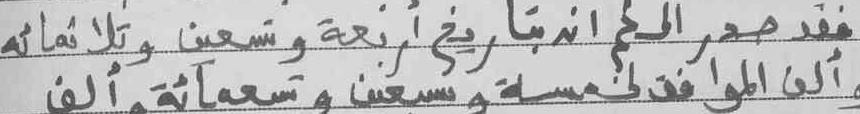 فقد صدر الحكم انه بتاريخ أربعة وتسعين وثلاثمائه
وألف الموافق لخمسة وسبعين وتسعمائة وألف